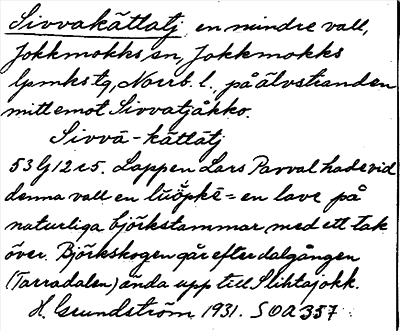 Sivvakätlatj, en mindre vall,
Jokkmokks sn, Jokkmokks
lpmks tg, Norrb. l., på älvstranden
mittemot Sivvatjåkko.
Sivvā-kätlātj
53G/2c5. Lappen Lars Parval hade vid
denna vall en lūöpkē = en lave på
naturliga björkstammar med ett tak
över. Björkskogen går efter dalgången
(Tarradalen) ända upp till Slihtajokk.
H. Grundström 1931. SOA 357